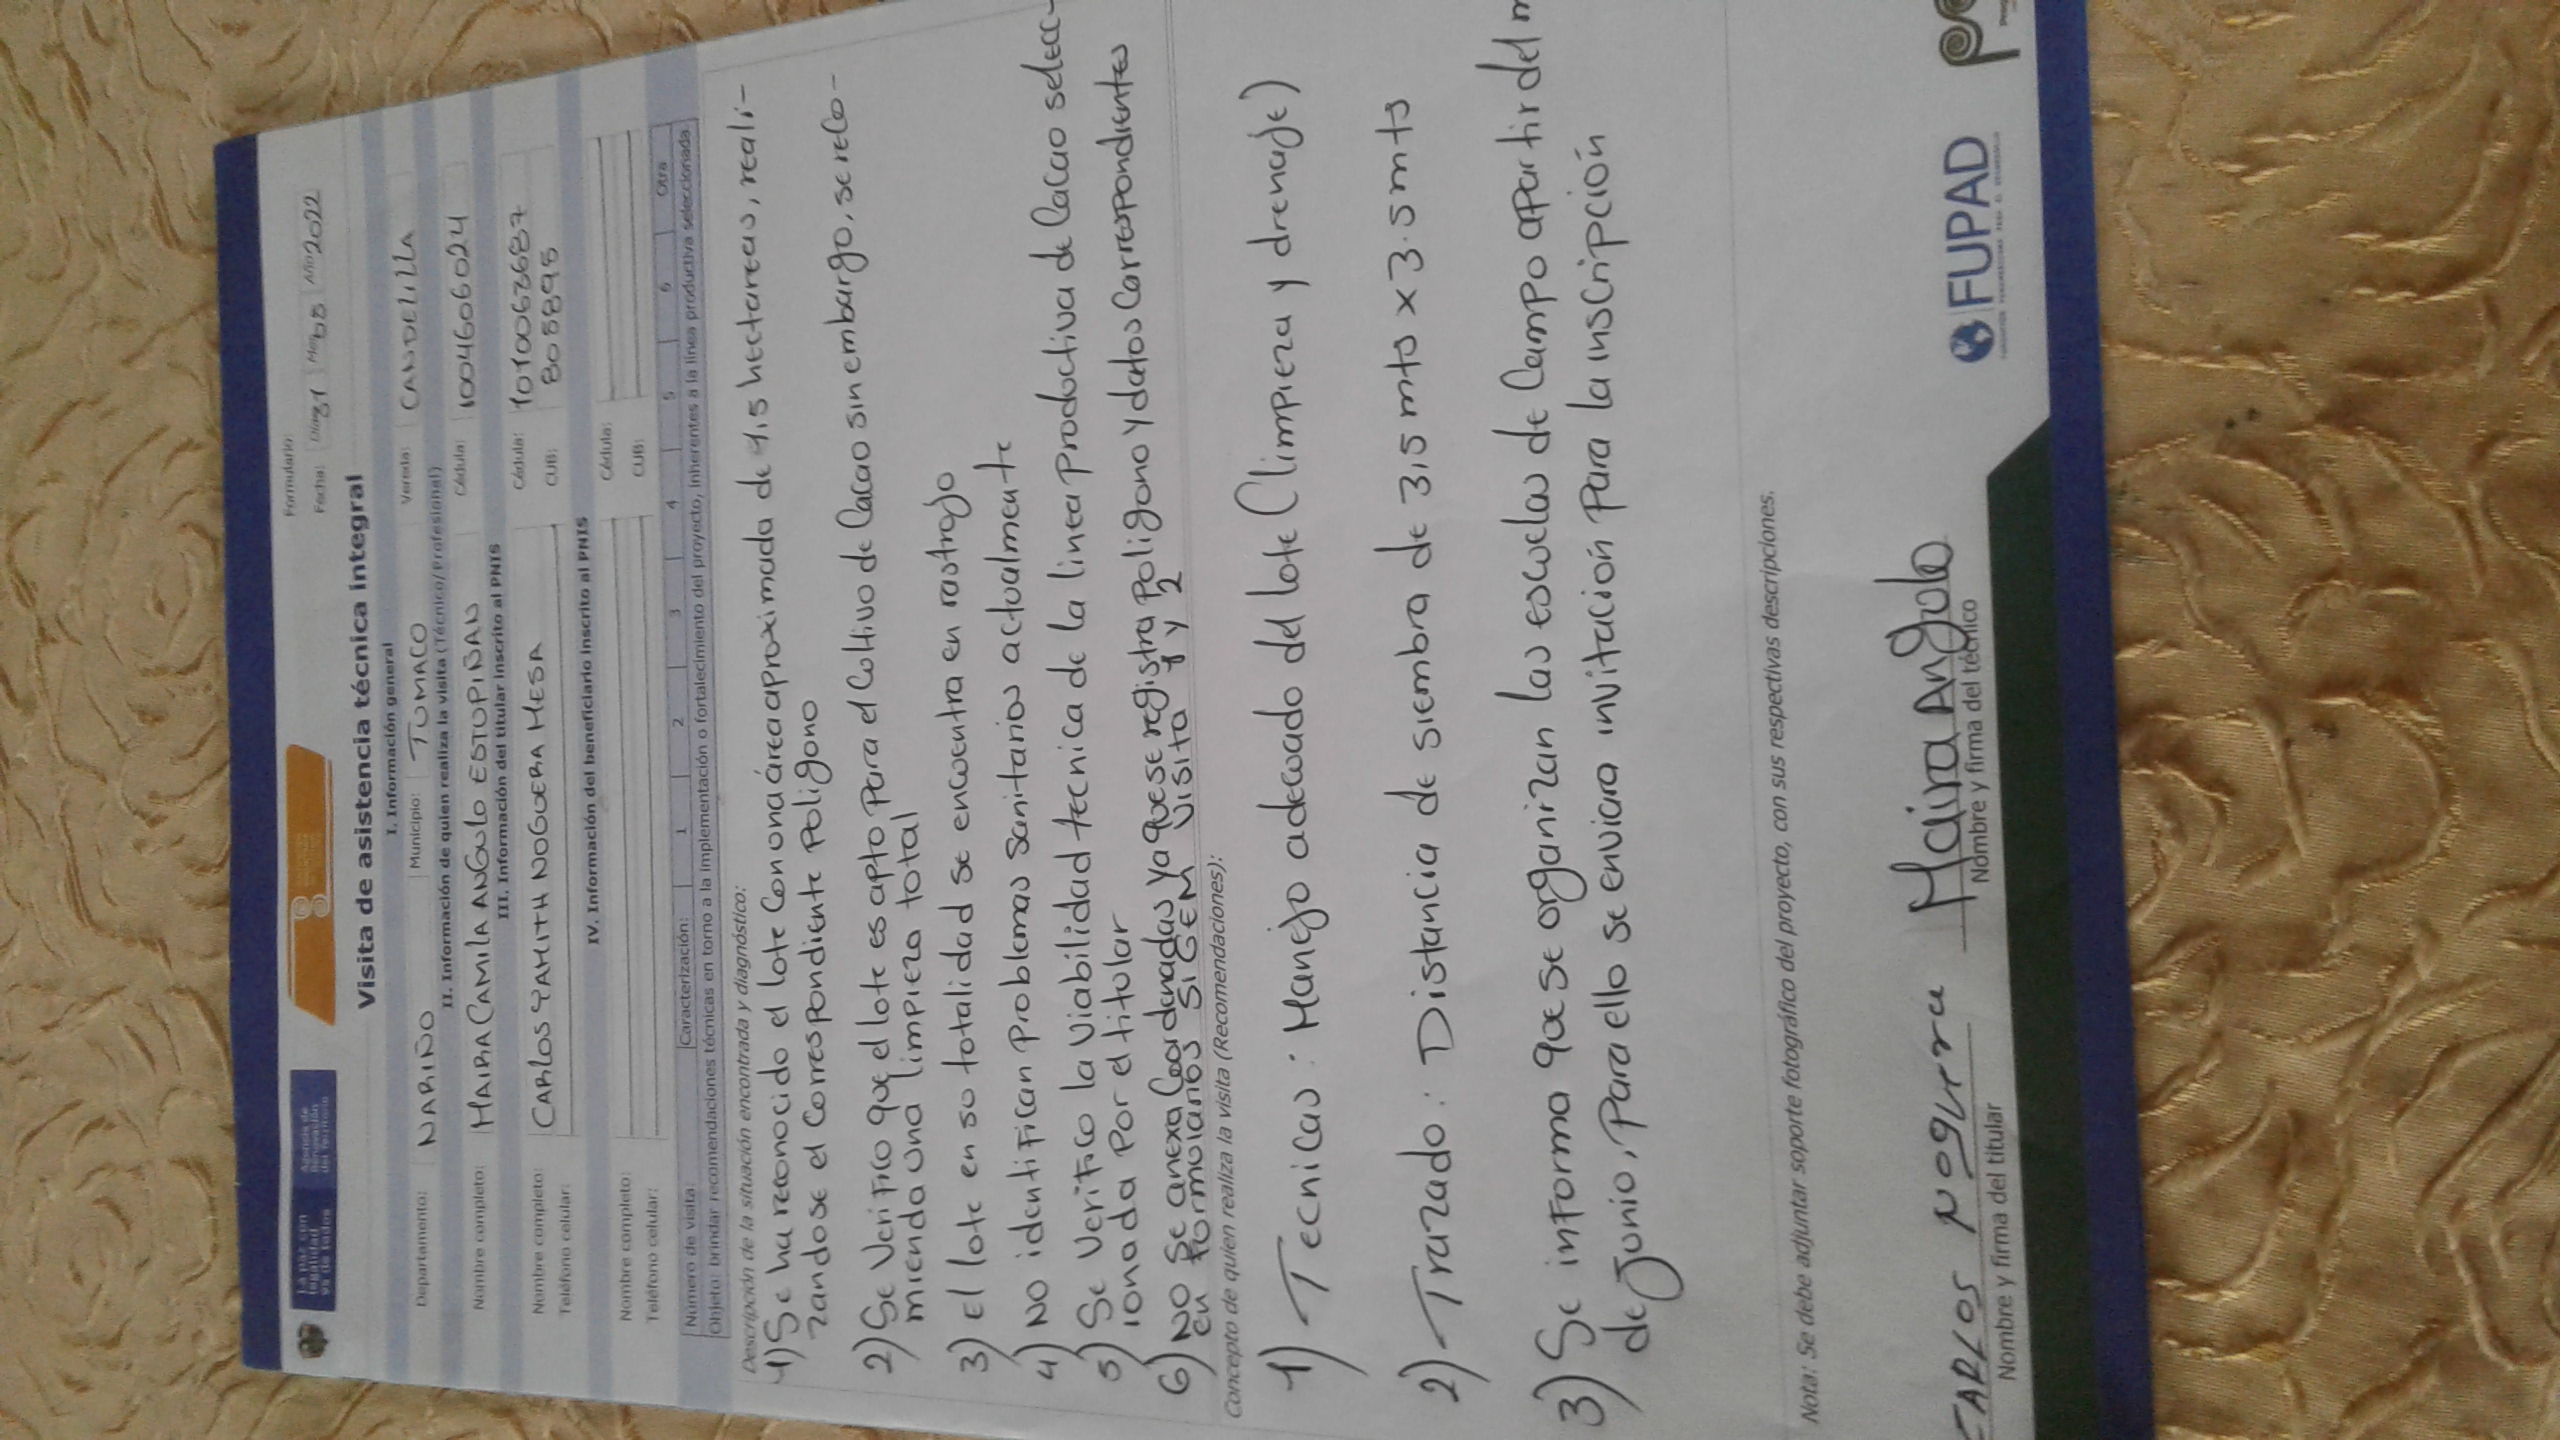 La paz en
legalidad
es de todos
Agencia de
Renovación
del Territorio
Formulario:
Fecha: Día 31 Mes 05 Año 2022
Visita de asistencia técnica integral
I. Información general
Departamento: NARIÑO Municipio: TUMACO Vereda: CANDELILLA
II. Información de quien realiza la visita (Técnico/Profesional)
Nombre completo: MAIRA CAMILA ANGULO ESTUPIÑAN Cédula: 1004606024
III. Información del titular inscrito al PNIS
Nombre completo: CARLOS YAMITH NOGUERA MESA Cédula:
Teléfono celular: CUB: 805895
IV. Información del beneficiario inscrito al PNIS
Nombre completo: Cédula:
Teléfono celular: CUB:
Número de visita: Caracterización: 1 2 3 4 5 6 Otra
Objeto: brindar recomendaciones técnicas en torno a la implementación o fortalecimiento del proyecto, inherentes a la línea productiva seleccionada.
Descripción de la situación encontrada y diagnóstico:
1) Se ha reconocido el lote con una área aproximada de 1.5 hectareas, reali-
zandose el correspondiente poligono
2) Se verifico que el lote es apto para el cultivo de Cacao sin embargo, se reco-
mienda una limpieza total
3) El lote en su totalidad se encuentra en rastrojo
4) No identifican problemas sanitarios actualmente
5) Se verifico la viabilidad tecnica de la linea productiva de Cacao selecc-
ionada por el titular
6) No se anexa Coordenadas ya que se registra poligono y datos Correspondientes
en formularios SIGEM visita 1 y 2
Concepto de quien realiza la visita (Recomendaciones):
1) Tecnicas: Manejo adecuado del lote (limpieza y drenaje)
2) Trazado: Distancia de siembra de 3.5 mts x 3.5 mts
3) Se informa que se organizan las escuelas de Campo apartir del m
de junio, para ello se enviara invitación para la inscripción
Nota: Se debe adjuntar soporte fotográfico del proyecto, con sus respectivas descripciones.
CARLOS NOGUERA Maira Angulo
Nombre y firma del titular Nombre y firma del técnico
FUPAD